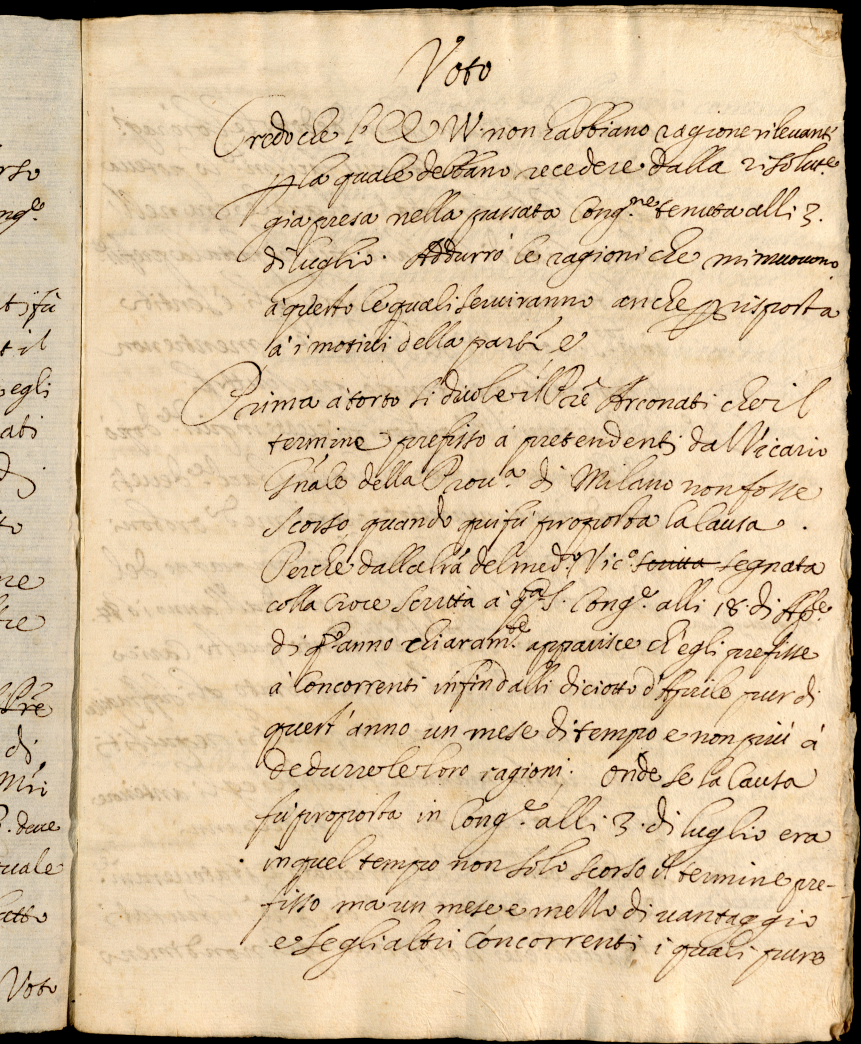 Voto
Credo che l'EE VV. non habbiano ragione rilevanti
p la quale debbano recedere dalla risolut.e
gia presa nella passata Cong.ne tenuta alli 3.
di luglio. Addurrò le ragioni che mi muovono
à questo le quali serviranno anche p risposta
à i motivi della parte e
Prima à torto si duole il Pre Arconati che il
termine prefisso à pretendenti dal Vicario
Gnale della Prov.a di Milano non fosse
scorso quando qui fù proposta la Causa.
Perche dalla lrã del med.o Vic.o scritta segnata
colla Croce scritta à q.ta S. Cong.e alli 18 di Ap.le
di q.o anno chiaram.te apparisce ch'egli prefisse
à Concorrenti infin dalli diciotto d'Aprile pur di
quest'anno un mese di tempo e non più à
dedurre le loro ragioni. Onde se la Causa
fù proposta in Cong.e alli 3. di luglio era
in quel tempo non solo scorso il termine pre-
fisso ma un mese e mezzo di vantaggio
e se gli altri Concorrenti i quali pure
rso
ng.e
fù
t il
egli
ati
di
to
ne
tre
Pre
di
Mri
deve
quale
fatto
Voto